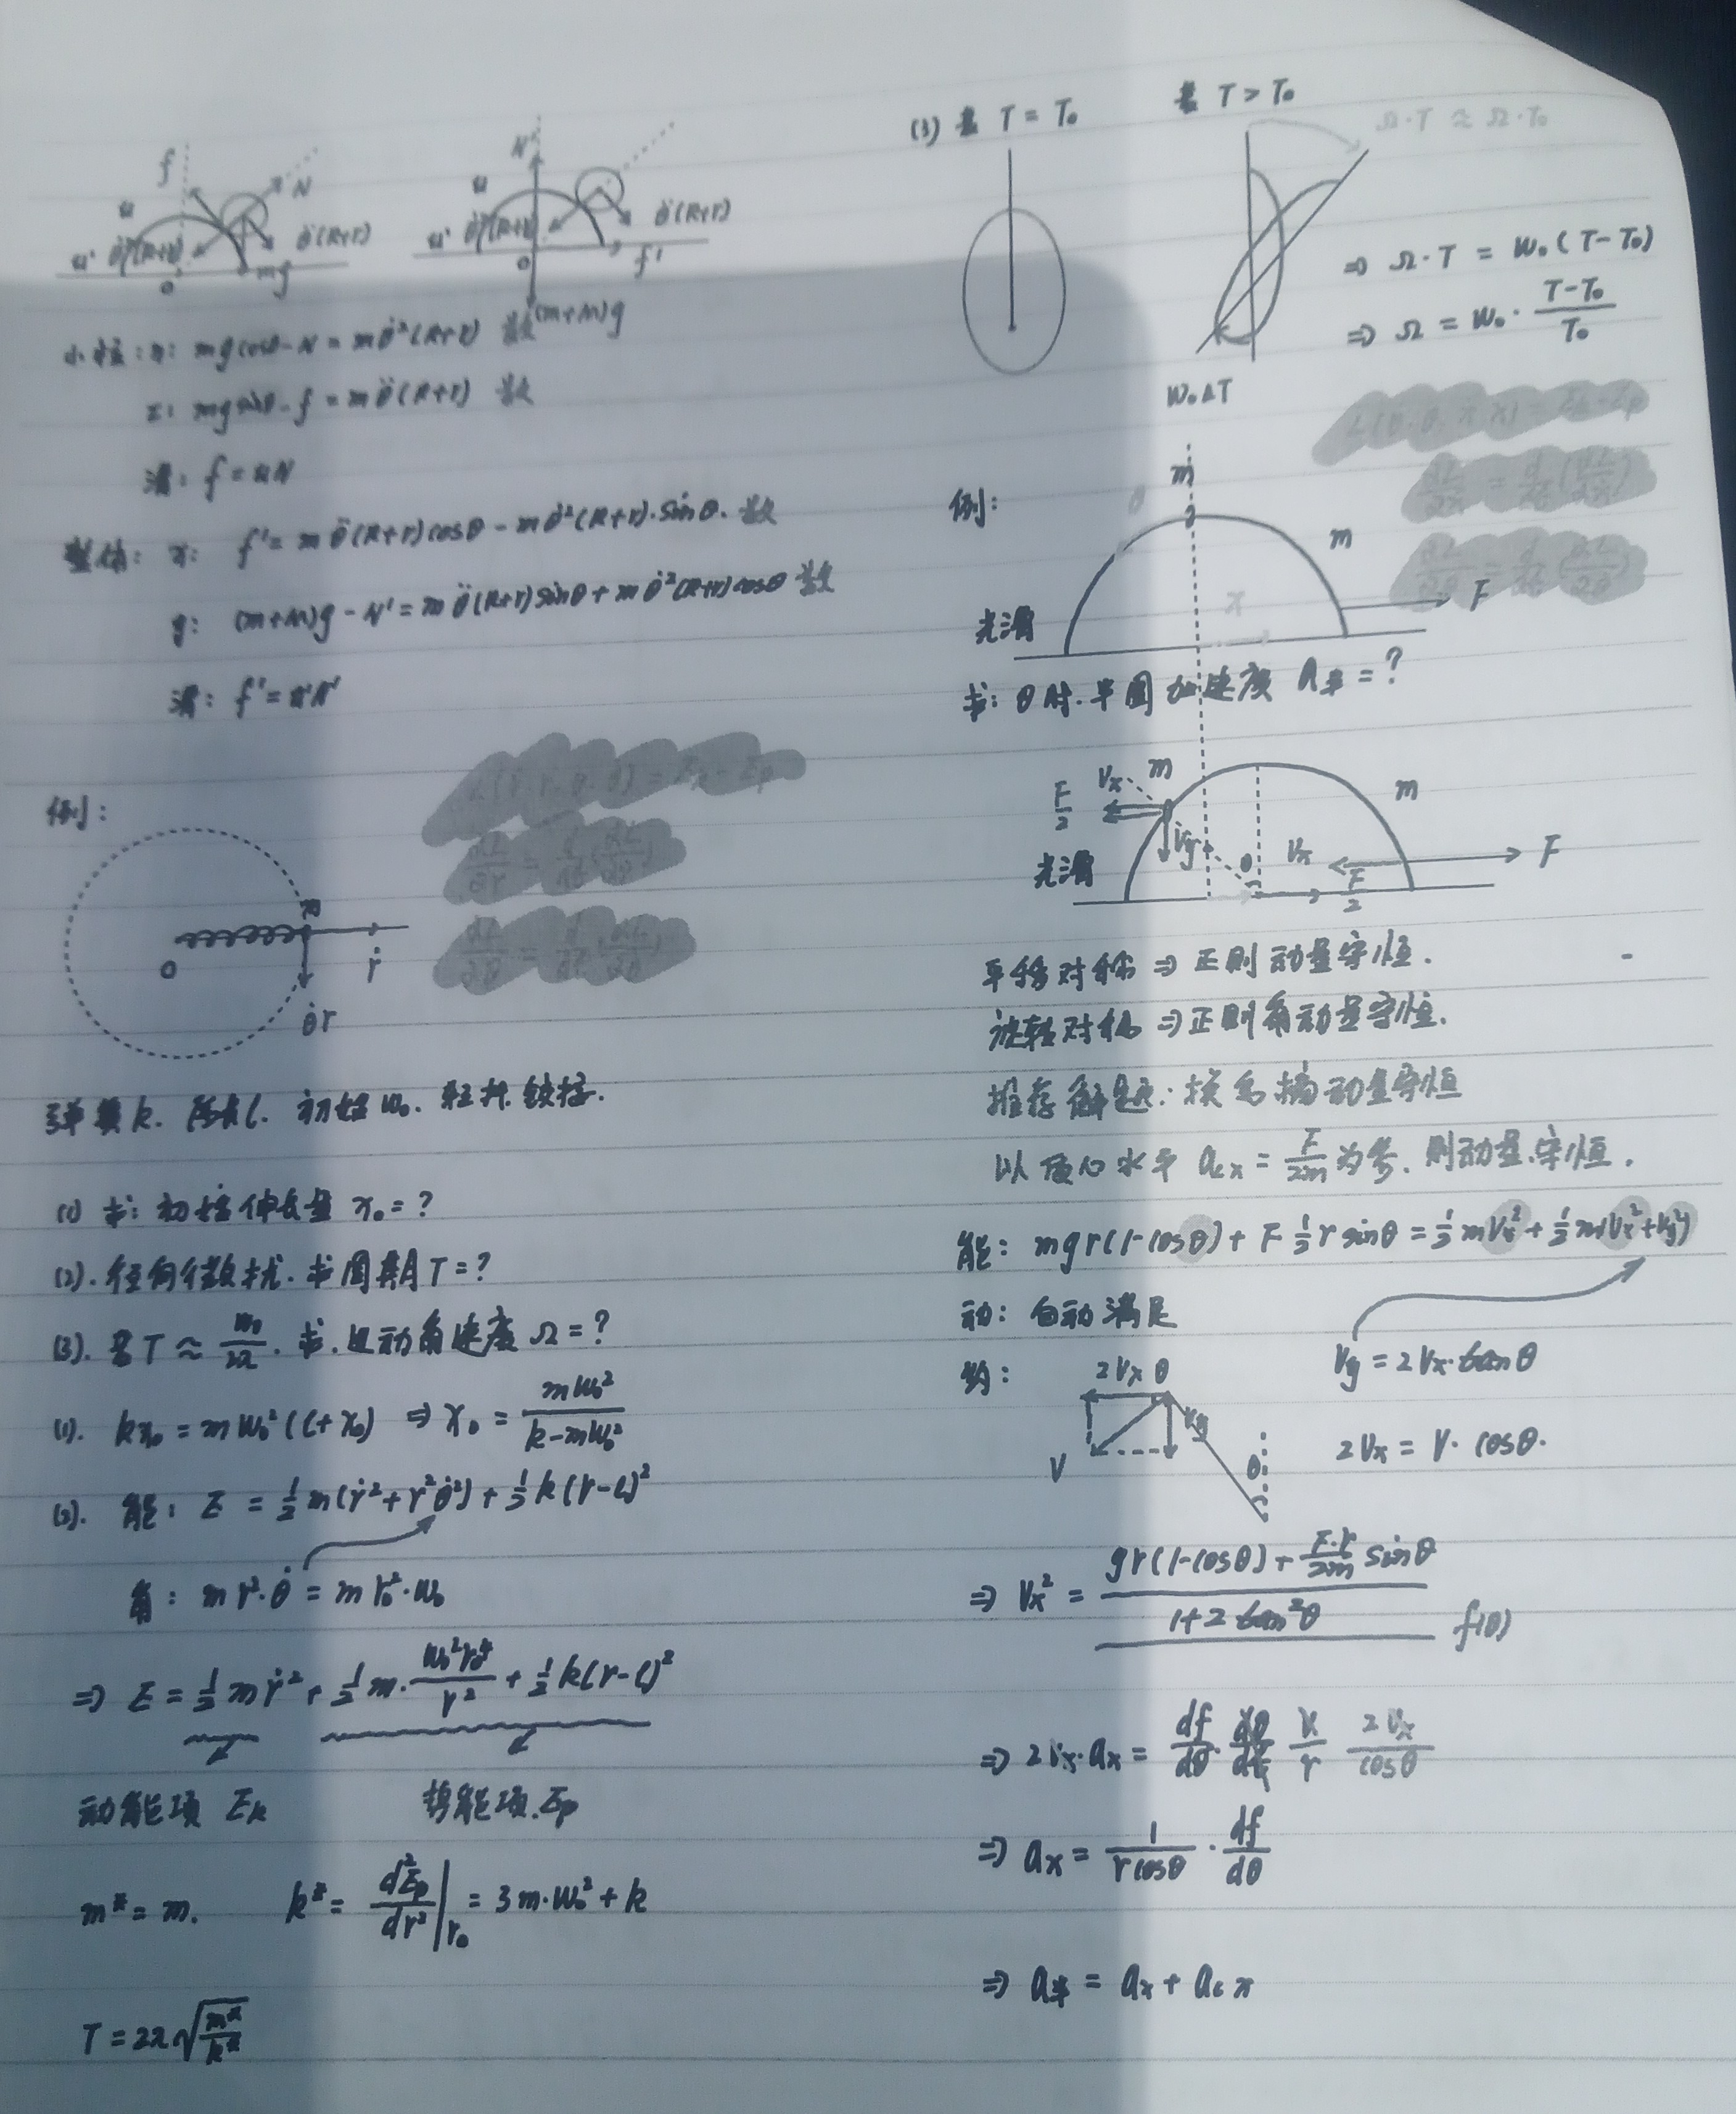 f N u θ̈(R+r) u' θ̇²(R+r) mg o
N' u θ̈(R+r) u' θ̇²(R+r) o f' (m+M)g
小柱: n: mgcosθ-N = mθ̇²(R+r) 数
τ: mgsinθ-f = mθ̈(R+r) 数
滑: f=uN
整体: x: f' = mθ̈(R+r)cosθ - mθ̇²(R+r)·sinθ. 数
y: (m+M)g - N' = mθ̈(R+r)sinθ + mθ̇²(R+r)cosθ 数
滑: f'=u'N'
例:
L(ṙ, r, θ̇, θ) = Ek - Ep
m
O ṙ
θ̇r
弹簧k. 原长l. 初始 ω₀.
(1) 求: 初始伸长量 x₀=?
(2). 径向微扰. 求周期T=?
(3). 若 T ≈ ω₀/2π. 求. 进动角速度 Ω=?
(1). kx₀ = mω₀²(l+x₀) ⇒ x₀ = mω₀²/(k-mω₀²)
(2). 能: E = ½m(ṙ²+r²θ̇²)+½k(r-l)²
角: mr²·θ̇ = mr₀²·ω₀
⇒ E = ½mṙ² + ½m·ω₀²r₀⁴/r² + ½k(r-l)²
动能项 Ek 势能项.Ep
m* = m. k* = d²Ep/dr²|r₀ = 3m·ω₀²+k
T = 2π√(m*/k*)
(3) 若 T = T₀ 若 T > T₀
Ω·T ≈ Ω·T₀
⇒ Ω·T = ω₀(T-T₀)
⇒ Ω = ω₀·(T-T₀)/T₀
ω₀ΔT
L(θ̇, θ, ẋ, x) = Ek-Ep
例: θ m m
x F
光滑
求: θ时. 半圆加速度 a半=?
F/2 Vx m m
光滑 Vy θ Vx F/2 F
平移对称 ⇒ 正则动量守恒.
旋转对称 ⇒ 正则角动量守恒.
推荐解题: 换系搞动量守恒
以质心水平 acx = F/2m 为参. 则动量守恒.
能: mgr(1-cosθ) + F½rsinθ = ½mVx² + ½m(Vx²+Vy²)
动: 自动满足
Vy = 2Vx·tanθ
约: 2Vx θ Vy V θ
2Vx = V·cosθ.
⇒ Vx² = (gr(1-cosθ) + F·r/2m sinθ)/(1+2tan²θ) f(θ)
⇒ 2Vx·ax = df/dθ · V/r 2Vx/cosθ
⇒ ax = 1/(rcosθ) · df/dθ
⇒ a半 = ax + acx